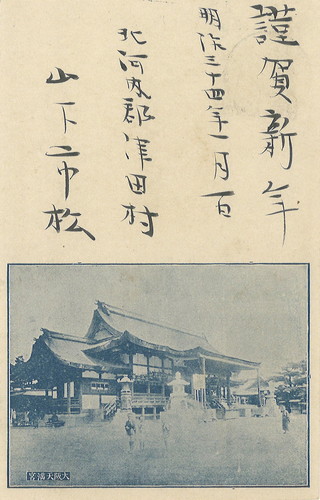 謹賀新年
明治三十四年一月一日
北河内郡津田村
山下市松
大阪天滿宮